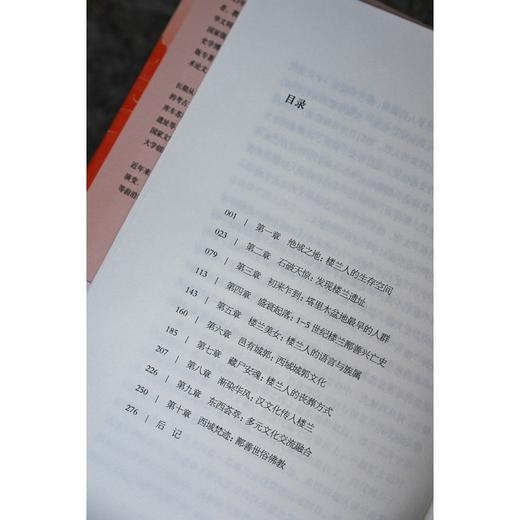 华文明
国家级
史学博
版专著
术论文
长期从
的考古
库车苏
遗址等
国家文
大学创
近年来
演变、
等前沿
目录
001 | 第一章 绝域之地：楼兰人的生存空间
023 | 第二章 石破天惊：发现楼兰遗址
079 | 第三章 初来乍到：塔里木盆地最早的人群
113 | 第四章 盛衰起落：1–5 世纪楼兰鄯善兴亡史
143 | 第五章 楼兰美女：楼兰人的语言与族属
160 | 第六章 邑有城郭：西域城郭文化
185 | 第七章 藏尸安魂：楼兰人的丧葬方式
207 | 第八章 渐染华风：汉文化传入楼兰
226 | 第九章 东西荟萃：多元文化交流融合
250 | 第十章 西域梵迹：鄯善世俗佛教
276 | 后记